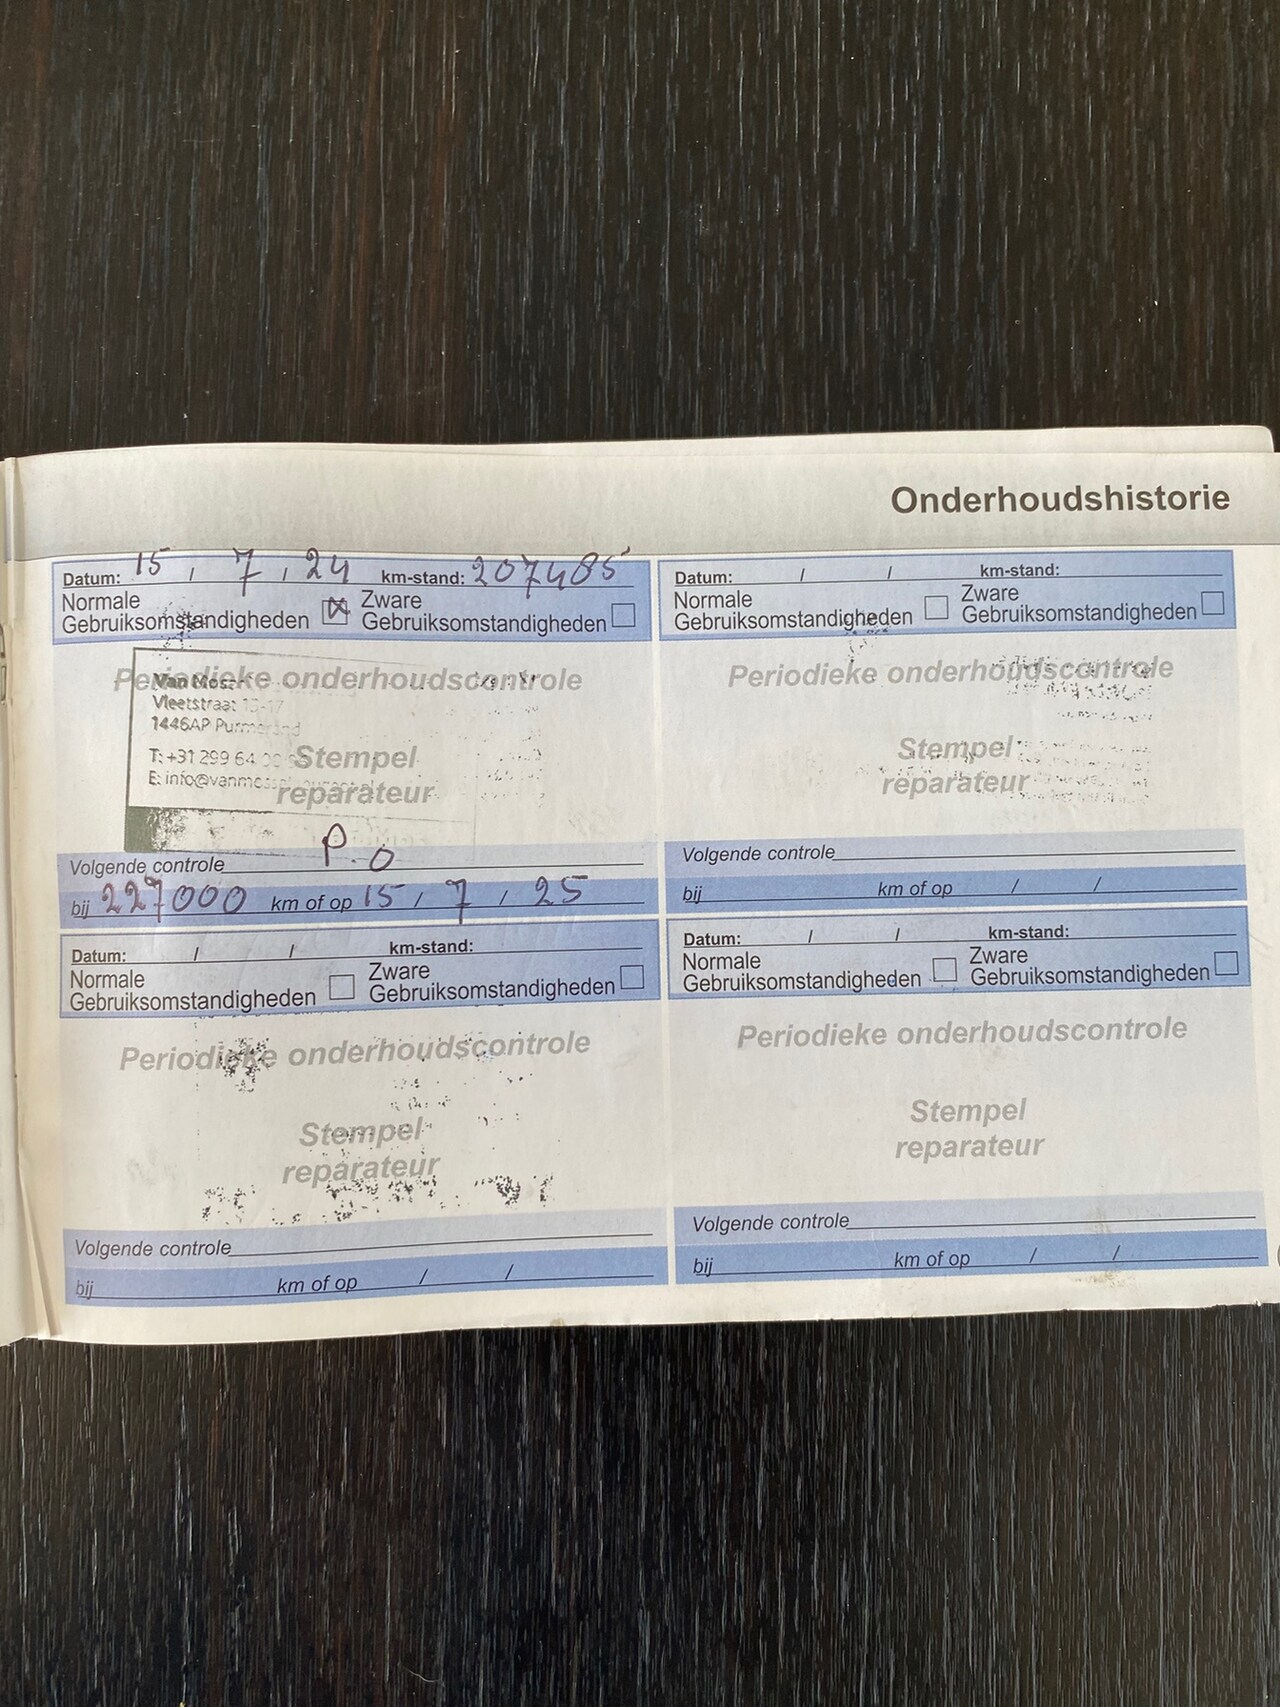 Onderhoudshistorie
Datum: 15 / 7 / 24 km-stand: 207485
Normale
Gebruiksomstandigheden
Zware
Gebruiksomstandigheden
Periodieke onderhoudscontrole
Van
Vleetstraat
1446AP Purmerend
T: +31 299 64
E:
Stempel
reparateur
Volgende controle P.O
bij 227000 km of op 15 / 7 / 25
Datum: / / km-stand:
Normale
Gebruiksomstandigheden
Zware
Gebruiksomstandigheden
Periodieke onderhoudscontrole
Stempel
reparateur
Volgende controle
bij km of op / /
Datum: / / km-stand:
Normale
Gebruiksomstandigheden
Zware
Gebruiksomstandigheden
Periodieke onderhoudscontrole
Stempel
reparateur
Volgende controle
bij km of op / /
Datum: / / km-stand:
Normale
Gebruiksomstandigheden
Zware
Gebruiksomstandigheden
Periodieke onderhoudscontrole
Stempel
reparateur
Volgende controle
bij km of op / /